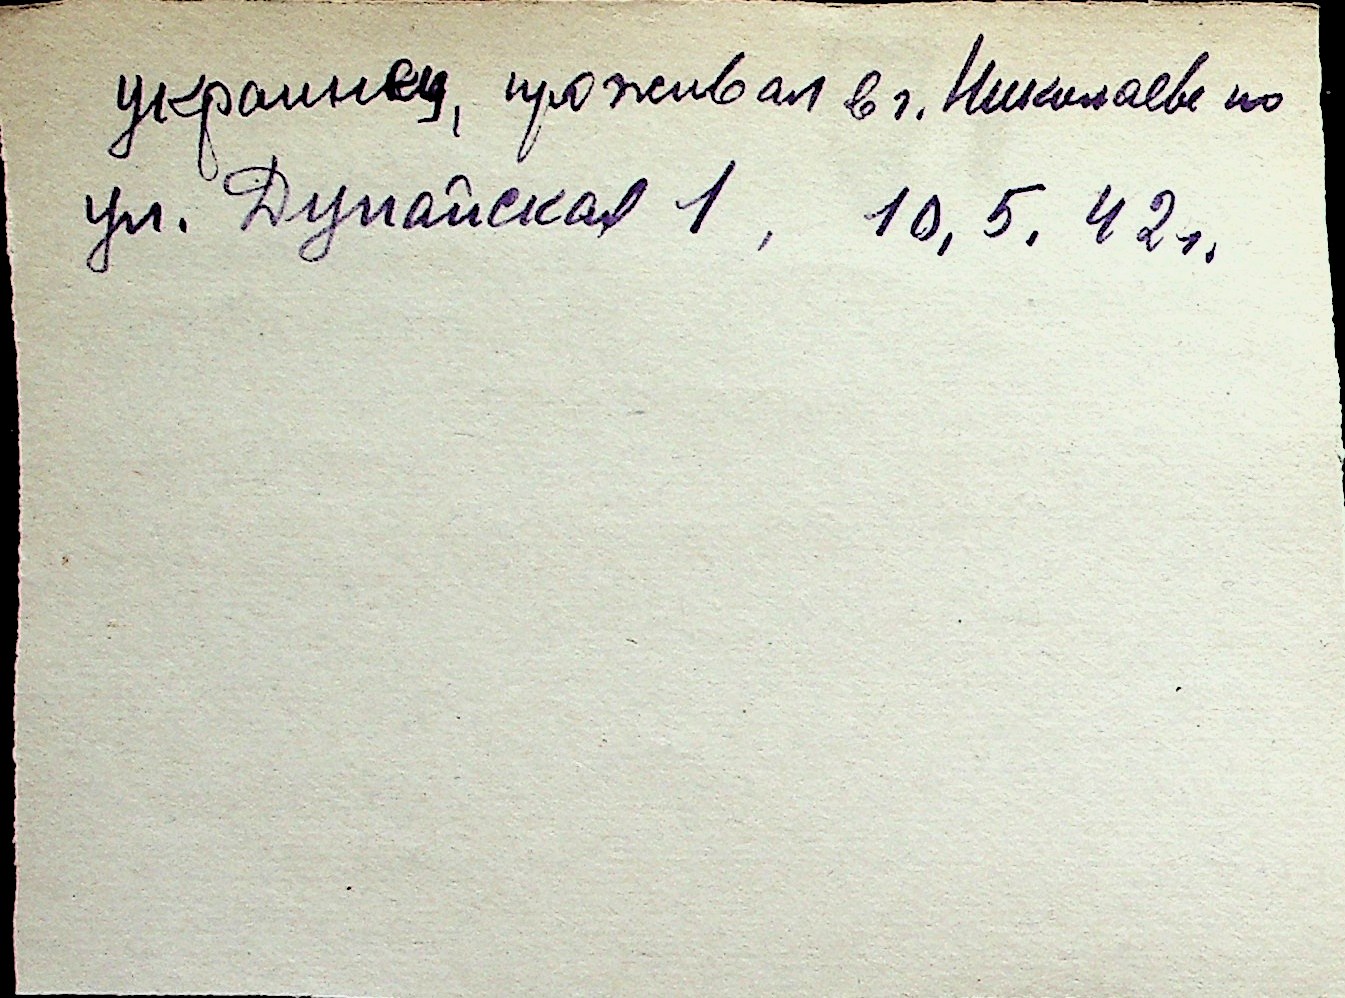 украинец, проживал в г. Николаеве по
ул. Дунайская 1, 10.5.42г.